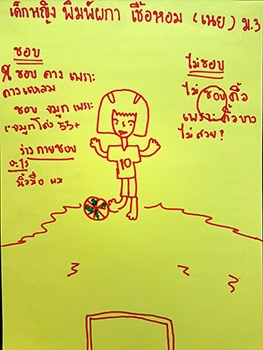 เด็กหญิง พิมพ์ผกา เชื้อหอม (เนย) ม.3
ชอบ
ชอบ คาง เพราะ
คางแหลม
ชอบ จมูก เพราะ
จมูกโด่ง 55+
ร่างกายชอบ
อะไร
นิ้วมือ
ไม่ชอบ
ไม่ ชอบคิ้ว
เพราะคิ้วบาง
ไม่สวย?
10